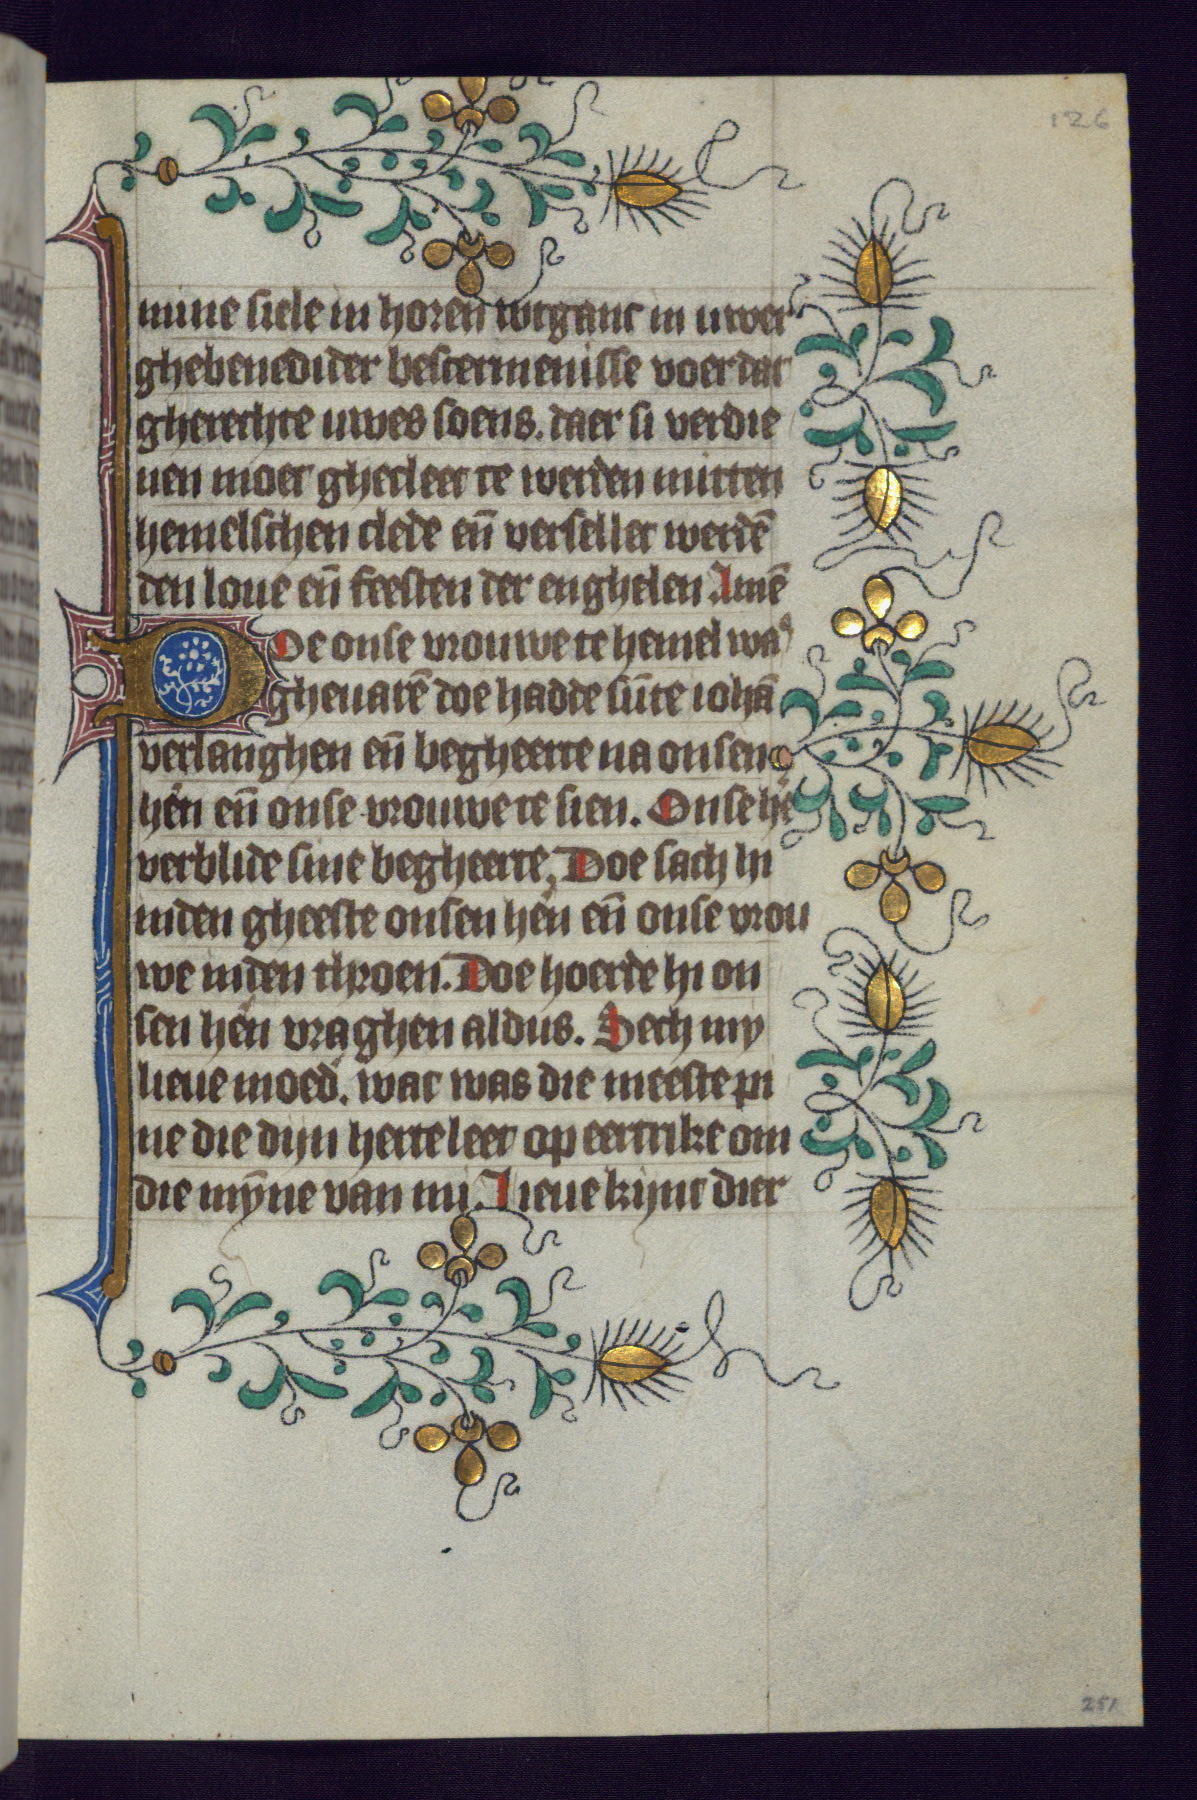 126
mine siele in horen wtganc in uwer
ghebenediter bescermenisse voer dat
gherechte uwes soens. daer si verdie
nen moet ghecleet te werden mitten
hemelschen clede en̄ versellet werdē
den loue en̄ feesten der enghelen Amē
Doe onse vrouwe te hemel was
gheuarē doe hadde sūte iohā
verlanghen en̄ begheerte na onsen
hēn en̄ onse vrouwe te sien. Onse hē
verblide sine begheerte. Doe sach hi
inden gheeste onsen hēn en̄ onse vrou
we inden throen. Doe hoerde hi on
sen hēn vraghen aldus. Sech my
lieue moed. wat was die meeste pi
ne die dijn herte leet op eertrike om
die mȳne van mi. Lieue kijnt dier
251